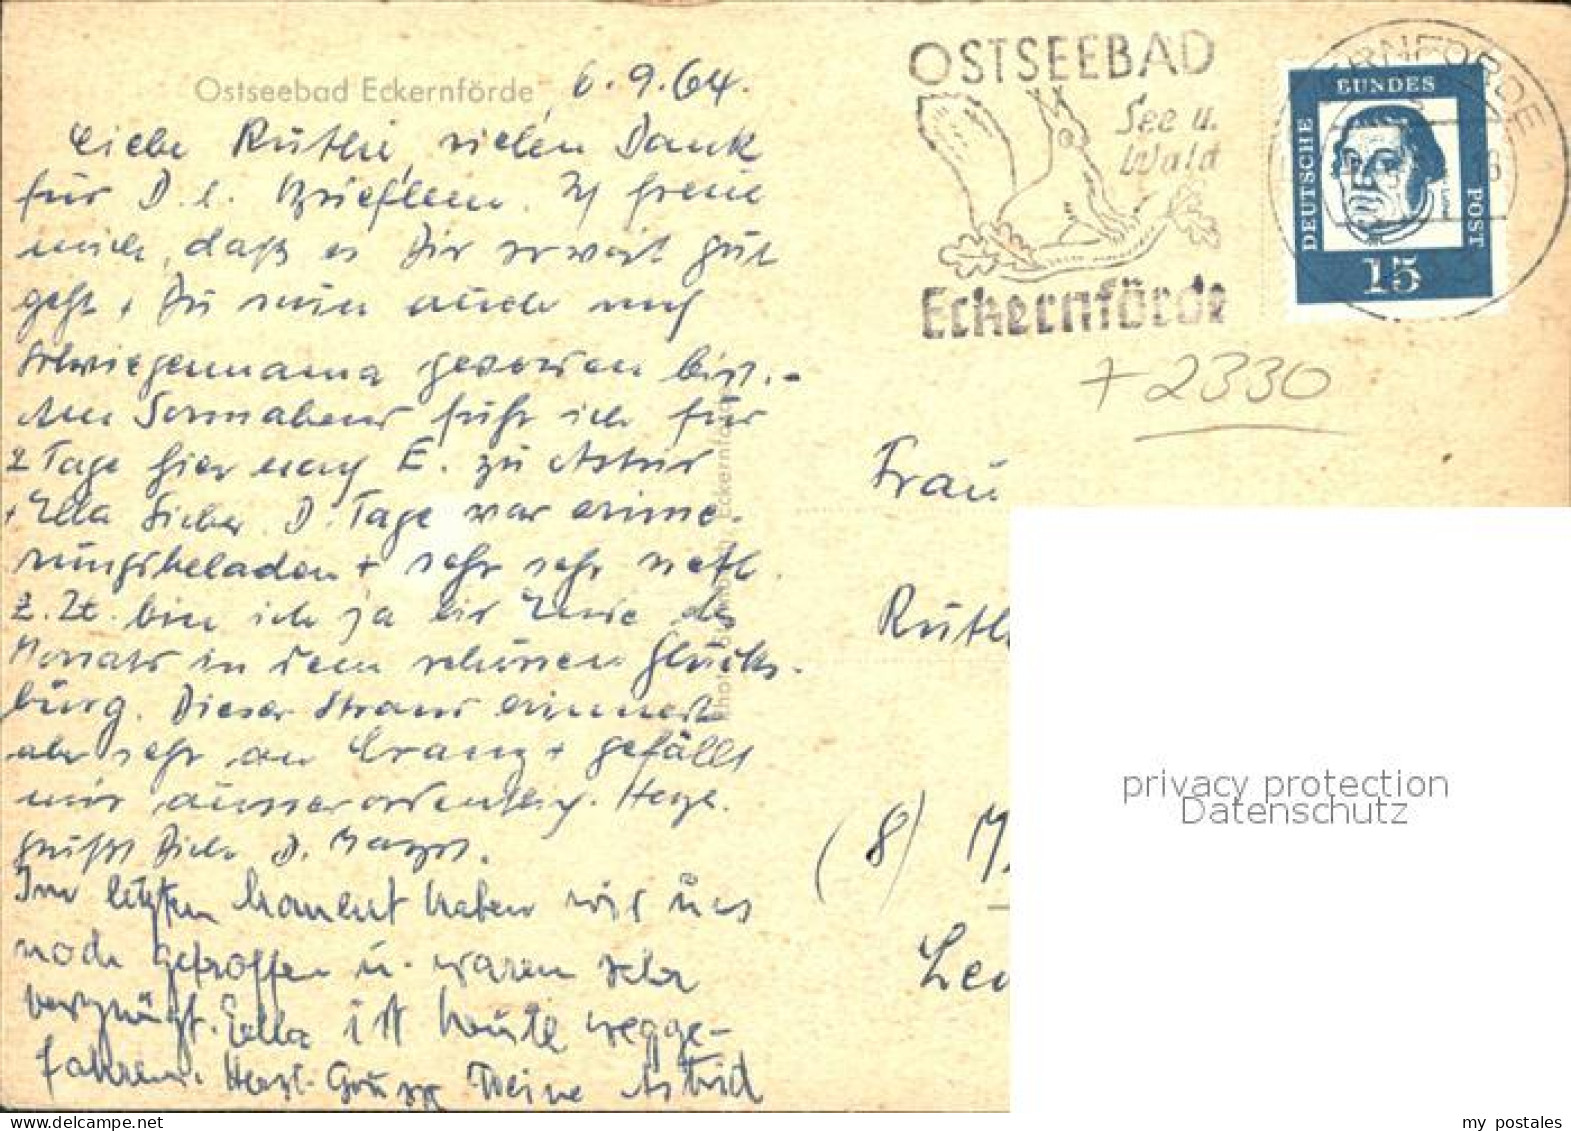 Ostseebad Eckernförde 6.9.64.
Liebe Ruthi, vielen Dank
für D. l. Brieflein. Ich freue
mich, daß es Dir soweit gut
geht, Du nun auch noch
Schwiegermama geworden bist.-
Am Sonnabend fuhr ich für
2 Tage hier nach E. zu Astrid
+ Ella Sieber. D. Tage war erinne-
rungsbeladen + sehr sehr nett.
Z. Zt. bin ich ja bis Ende des
Monats in dem schönen Glücks-
burg. Dieser Strand erinnert
aber sehr an Cranz + gefällt
mir ausserordentlich. Herzl.
grüßt Dich D.
Im letzten Moment haben wir uns
noch getroffen u. waren sehr
vergnügt. Ella ist heute wegge-
fahren. Herzl. Grüße Deine Astrid
Eckernförde
OSTSEEBAD
See u.
Wald
Eckernförde
ERNFÖRDE
DEUTSCHE
BUNDES
POST
15
+ 2330
Frau
Ruth
(8) M
Leo
privacy protection
Datenschutz
my postales